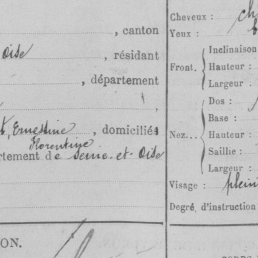 , canton
Oise, résidant
, département
, Ernestine, domiciliés
Florentine
artement de Seine-et-Oise
ON.
Cheveux :
Yeux :
Front. Inclinaison
Hauteur :
Largeur :
Nez... Dos :
Base :
Hauteur :
Saillie :
Largeur :
Visage : plein
Degré d'instruction